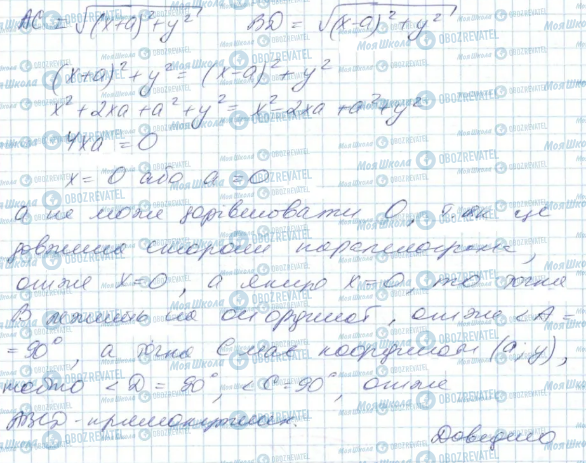 AC = √((x+a)²+y²)    BD = √((x-a)²+y²)
(x+a)²+y² = (x-a)²+y²
x²+2xa+a²+y² = x²-2xa+a²+y²
4xa = 0
x = 0 або a = 0
a не може дорівнювати 0, т.як це
довжина сторони паралелограма,
отже x=0, а якщо x=0, то точка
B лежить на осі ординат, отже <A =
= 90°, а точка C має координати (a; y),
тобто <D = 90°, <C = 90°, отже
ABCD - прямокутник.
Доведено